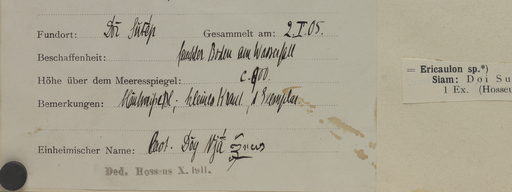 Fundort: Doi Sutäp Gesammelt am: 2.I.05.
Beschaffenheit: feuchter Boden am Wasserfall
Höhe über dem Meeresspiegel: c. 600.
Bemerkungen: kleines Kraut, 1 Exemplar
Einheimischer Name:
Ded. Hosseus X. 1911.
= Ericaulon sp.*)
Siam: Doi Su
1 Ex. (Hosseu